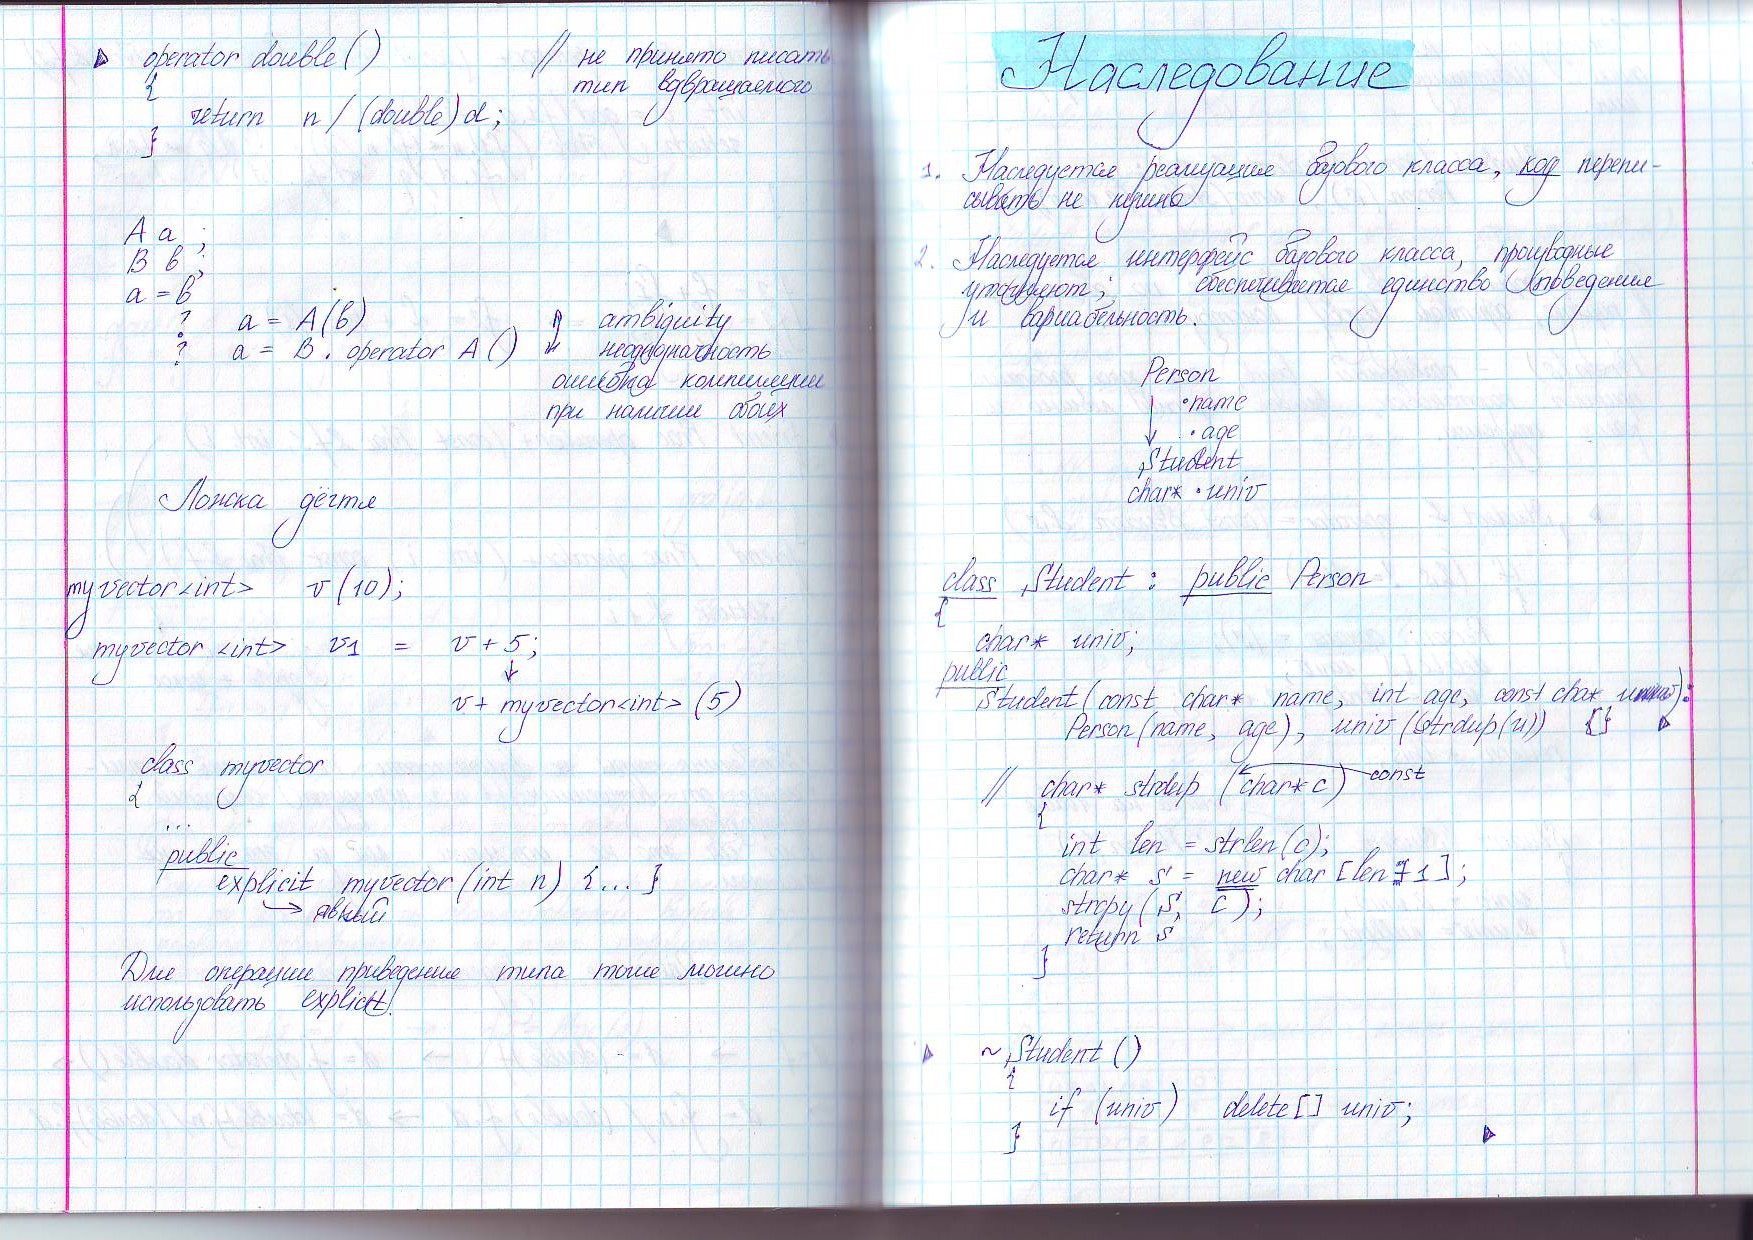 operator double() // не принято писать
{ тип возвращаемого
return n / (double)d;
}
A a ;
B b ;
a = b
? a = A(b) ambiguity
? a = B. operator A() неоднозначность
ошибка компиляции
при наличии обоих
Ложка дёгтя
myvector<int> v(10);
myvector <int> v1 = v + 5;
v + myvector<int> (5)
class myvector
{
...
public
explicit myvector(int n) {...}
→ явный
Для операции приведения типа тоже можно
использовать explicit.
Наследование
1. Наследуется реализация базового класса, код перепи-
сывать не нужно
2. Наследуется интерфейс базового класса, производные
уточняют; обеспечивается единство поведения
и вариабельность.
Person
• name
• age
Student
char* • univ
class Student : public Person
{
char* univ;
public
Student(const char* name, int age, const char* ):
Person(name, age), univ(strdup(u)) {}
// char* strdup (char* c) const
{
int len = strlen(c);
char* s = new char [len+1];
strcpy(s, c);
return s
}
~Student ()
{
if (univ) delete[] univ;
}